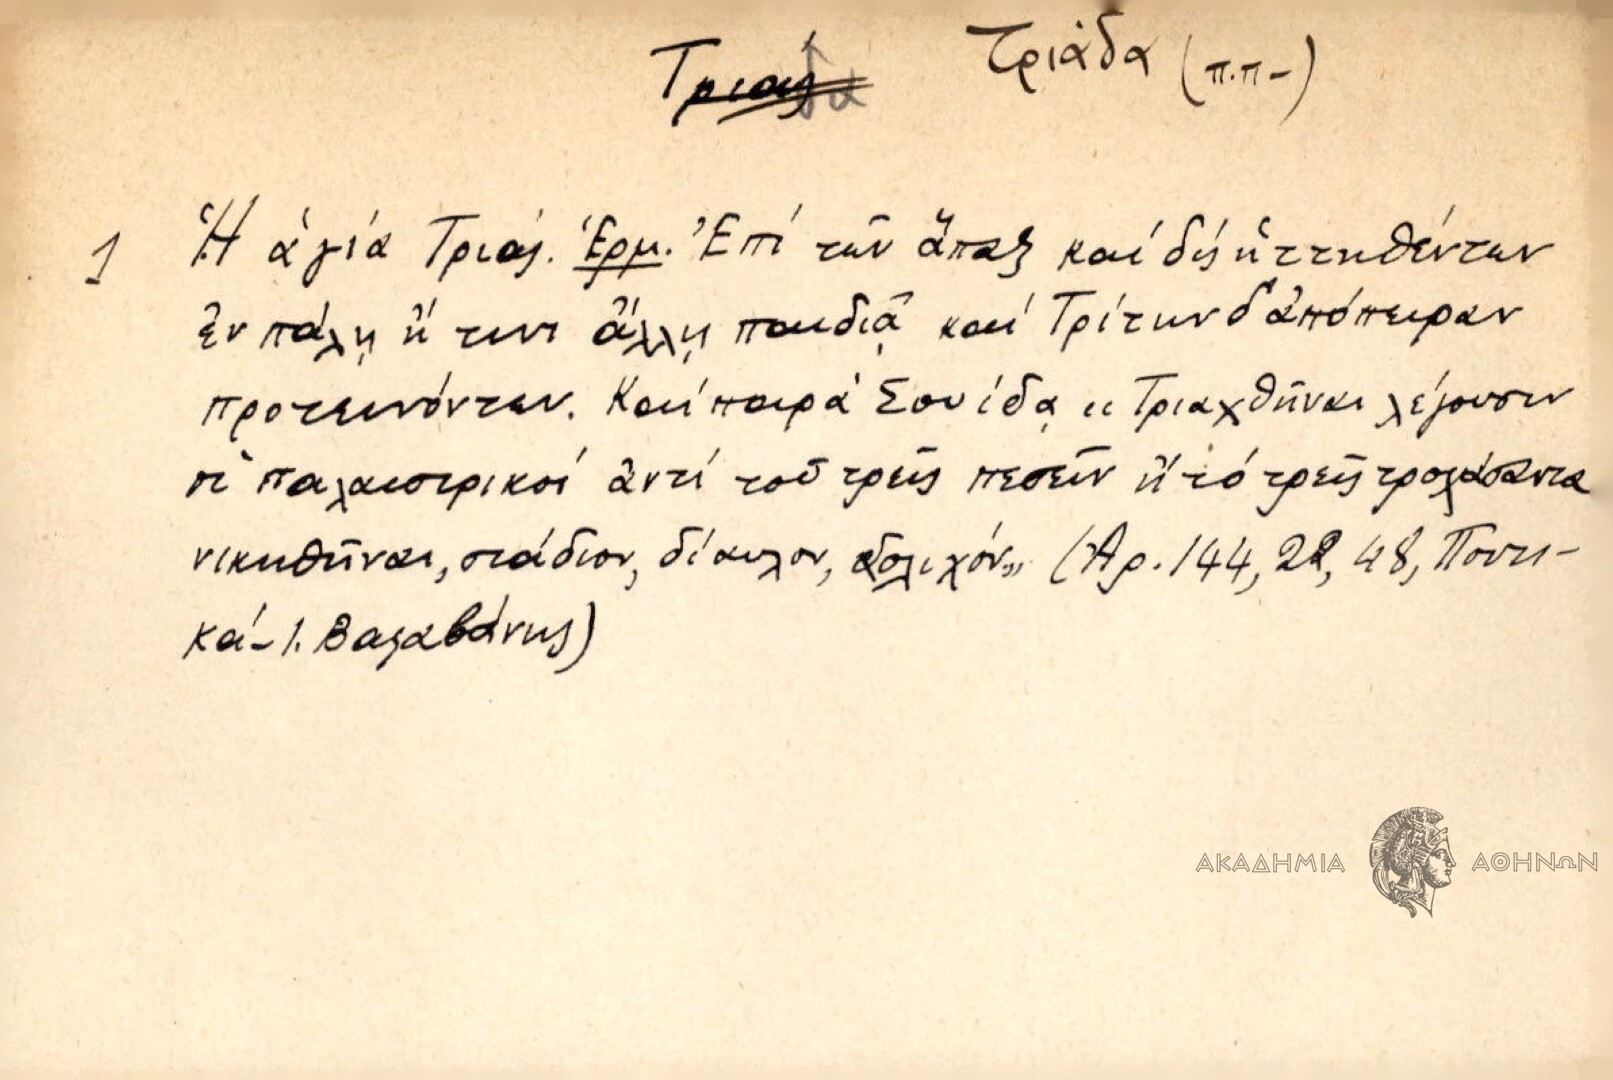 Τριάς δα Τριάδα (π.π-)
1 Ἡ ἁγία Τριάς. Ἑρμ. Ἐπί τῶν ἅπαξ καί δίς ἡττηθέντων
ἐν πάλῃ ἤ τινι ἄλλῃ παιδιᾷ καί Τρίτην δ' ἀπόπειραν
προτεινόντων. Καί παρά Σουίδᾳ "Τριαχθῆναι λέγουσιν
οἱ παλαιστρικοί ἀντί τοῦ τρεῖς πεσεῖν ἤ τό τρεῖς
νικηθῆναι, στάδιον, δίαυλον, δολιχόν" (Ἀρ. 144, 22, 48, Ποντι-
κά- Ι. Βαλαβάνης)
ΑΚΑΔΗΜΙΑ ΑΘΗΝΩΝ